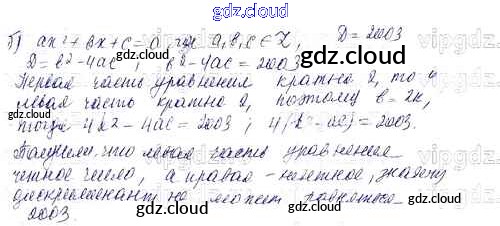 gdz.cloud
б) ax²+bx+c=0, где a,b,c ∈ Z, D=2003
D=b²-4ac; b²-4ac=2003
Первая часть уравнения кратна 2, то и
левая часть кратна 2, поэтому b=2k,
тогда 4k²-4ac=2003; 4(k²-ac)=2003.
Получили, что левая часть уравнения
четное число, а правая - нечетное, значит
дискриминант не может равняться
2003
gdz.cloud